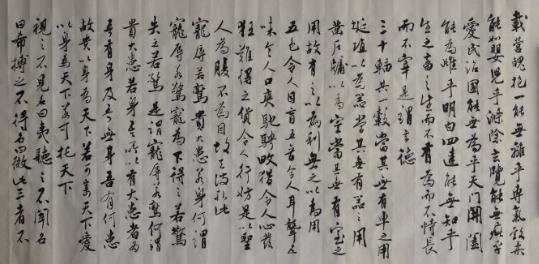 載營魄抱一能無離乎專氣致柔
能如嬰兒乎滌除玄覽能無疵乎
愛民治國能無為乎天門開闔
能為雌乎明白四達能無知乎
生之畜之生而不有為而不恃長
而不宰是謂玄德
三十輻共一轂當其無有車之用
埏埴以為器當其無有器之用
鑿戶牖以為室當其無有室之
用故有之以為利無之以為用
五色令人目盲五音令人耳聾五
味令人口爽馳騁畋獵令人心發
狂難得之貨令人行妨是以聖
人為腹不為目故去彼取此
寵辱若驚貴大患若身何謂
寵辱若驚寵為下得之若驚
失之若驚是謂寵辱若驚何謂
貴大患若身吾所以有大患者為
吾有身及吾無身吾有何患
故貴以身為天下若可寄天下愛
以身為天下若可托天下
視之不見名曰夷聽之不聞名
曰希搏之不得名曰微此三者不